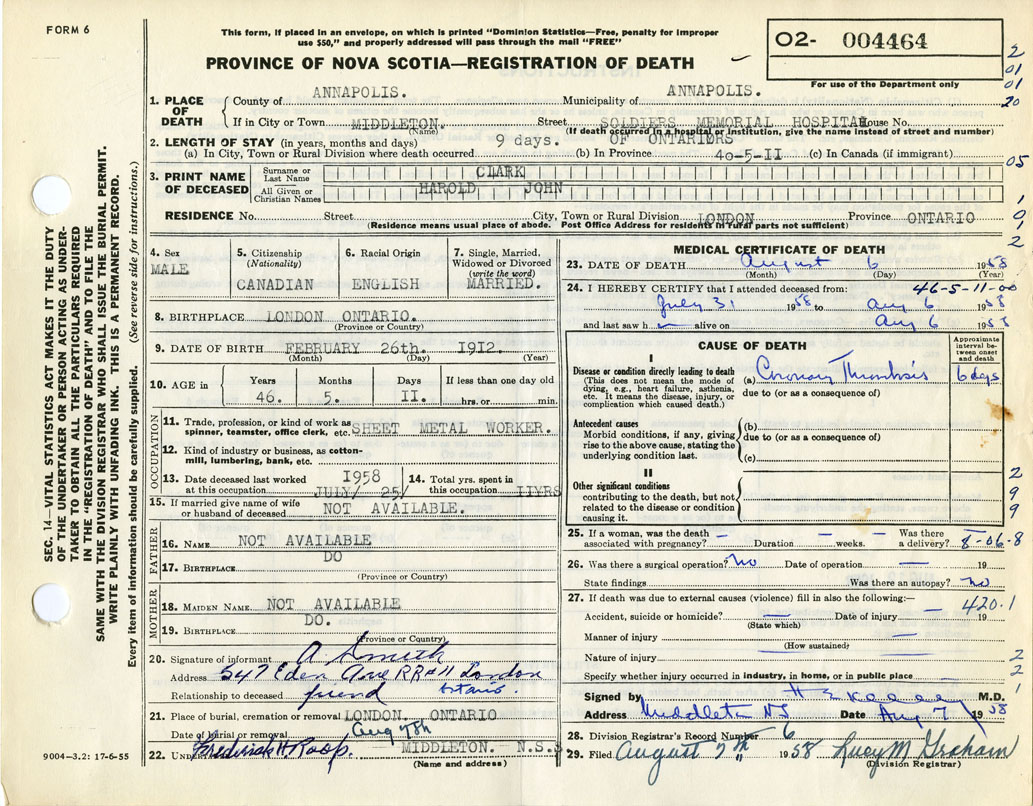 FORM 6
This form, if placed in an envelope, on which is printed "Dominion Statistics—Free, penalty for improper
use $50," and properly addressed will pass through the mail "FREE"
PROVINCE OF NOVA SCOTIA—REGISTRATION OF DEATH
O2- 004464
For use of the Department only
2
01
01
20
1. PLACE OF DEATH
County of ANNAPOLIS. Municipality of ANNAPOLIS.
If in City or Town MIDDLETON. Street SOLDIERS MEMORIAL HOSPITAL House No.
(Name) (If death occurred in a hospital or institution, give the name instead of street and number)
2. LENGTH OF STAY (in years, months and days) 9 days. OF ONTARIORS
(a) In City, Town or Rural Division where death occurred (b) In Province 40-5-II (c) In Canada (if immigrant)
05
3. PRINT NAME OF DECEASED
Surname or Last Name CLARK
All Given or Christian Names HAROLD JOHN
1
RESIDENCE No. Street City, Town or Rural Division LONDON Province ONTARIO
9
1
(Residence means usual place of abode. Post Office Address for residents in rural parts not sufficient)
2
4. Sex
MALE
5. Citizenship
(Nationality)
CANADIAN
6. Racial Origin
ENGLISH
7. Single, Married,
Widowed or Divorced
(write the word)
MARRIED.
8. BIRTHPLACE LONDON ONTARIO.
(Province or Country)
9. DATE OF BIRTH FEBRUARY 26th. I9I2.
(Month) (Day) (Year)
10. AGE in
Years Months Days If less than one day old
46. 5. II. hrs. or min.
OCCUPATION
11. Trade, profession, or kind of work as
spinner, teamster, office clerk, etc. SHEET METAL WORKER.
12. Kind of industry or business, as cotton-
mill, lumbering, bank, etc.
13. Date deceased last worked
at this occupation I958 JULY 25/
14. Total yrs. spent in
this occupation IIYRS
15. If married give name of wife
or husband of deceased NOT AVAILABLE.
FATHER
16. NAME NOT AVAILABLE
17. BIRTHPLACE DO
(Province or Country)
MOTHER
18. MAIDEN NAME NOT AVAILABLE
19. BIRTHPLACE DO.
(Province or Country)
20. Signature of informant A Smith
Address 547 Eden Ave RR#11 London
Ontario.
Relationship to deceased friend
21. Place of burial, cremation or removal LONDON. ONTARIO
Date of burial or removal Aug 7th
22. Und Frederick H. Roop. MIDDLETON. N.S.
(Name and address)
MEDICAL CERTIFICATE OF DEATH
23. DATE OF DEATH August 6 1958
(Month) (Day) (Year)
24. I HEREBY CERTIFY that I attended deceased from: 46-5-11-00
July 31 1958 to Aug 6 1958
and last saw h alive on Aug 6 1958
CAUSE OF DEATH
Approximate
interval be-
tween onset
and death
I
Disease or condition directly leading to death
(This does not mean the mode of
dying, e.g., heart failure, asthenia,
etc. It means the disease, injury, or
complication which caused death.)
(a) Coronary Thrombosis 6 days
due to (or as a consequence of)
Antecedent causes
Morbid conditions, if any, giving
rise to the above cause, stating the
underlying condition last.
(b)
due to (or as a consequence of)
(c)
II
Other significant conditions
contributing to the death, but not
related to the disease or condition
causing it.
2
9
9
25. If a woman, was the death
associated with pregnancy? — Duration — weeks. Was there
a delivery? —
8-06-8
26. Was there a surgical operation? No Date of operation — 19
State findings Was there an autopsy? no
27. If death was due to external causes (violence) fill in also the following:—
420.1
Accident, suicide or homicide? — Date of injury — 19
(State which)
Manner of injury —
(How sustained)
Nature of injury —
2
Specify whether injury occurred in industry, in home, or in public place —
2
1
Signed by M.D.
Address Middleton NS Date Aug 7 1958
28. Division Registrar's Record Number 6
29. Filed August 7th 1958 Lucy M Graham
(Division Registrar)
SEC. 14—VITAL STATISTICS ACT MAKES IT THE DUTY
OF THE UNDERTAKER OR PERSON ACTING AS UNDER-
TAKER TO OBTAIN ALL THE PARTICULARS REQUIRED
IN THE "REGISTRATION OF DEATH" AND TO FILE THE
SAME WITH THE DIVISION REGISTRAR WHO SHALL ISSUE THE BURIAL PERMIT.
WRITE PLAINLY WITH UNFADING INK. THIS IS A PERMANENT RECORD.
Every item of information should be carefully supplied. (See reverse side for instructions.)
9004-3.2: 17-6-55